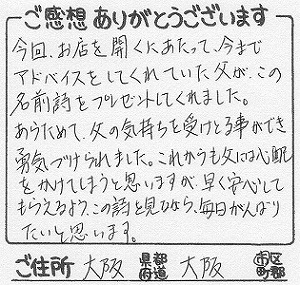 ご感想ありがとうございます
今回、お店を開くにあたって、今まで
アドバイスをしてくれていた父が、この
名前詩をプレゼントしてくれました。
あらためて、父の気持ちを受けとる事ができ
勇気づけられました。これからも父には心配
をかけてしまうと思いますが、早く安心して
もらえるよう、この詩を見ながら、毎日がんばり
たいと思います。
ご住所 大阪 県都府道 大阪 市区町郡